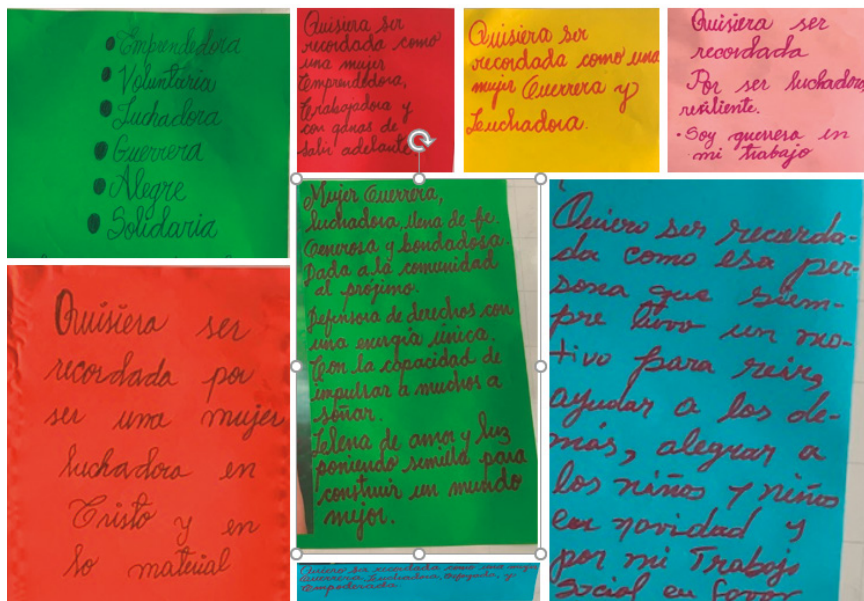 Emprendedora
Voluntaria
Luchadora
Guerrera
Alegre
Solidaria
Quisiera ser
recordada como
una mujer
Emprendedora,
Trabajadora y
con ganas de
salir adelante
Quisiera ser
recordada como una
mujer Guerrera y
Luchadora.
Quisiera ser
recordada
Por ser luchadora,
resiliente.
• Soy guerrera en
mi trabajo
Quisiera ser
recordada por
ser una mujer
luchadora en
Cristo y en
lo material
Mujer Guerrera,
luchadora, llena de fe.
Generosa y bondadosa.
Dada a la comunidad
al prójimo.
Defensora de derechos con
una energía única.
Con la capacidad de
impulsar a muchos a
soñar.
Llena de amor y luz
poniendo semilla para
construir un mundo
mejor.
Quiero ser recorda-
da como esa per-
sona que siem-
pre tuvo un mo-
tivo para reir,
ayudar a los de-
más, alegrar a
los niños y niñas
en navidad y
por mi Trabajo
Social en favor
Quiero ser recordada como una mujer
Guerrera, Luchadora, y
Empoderada